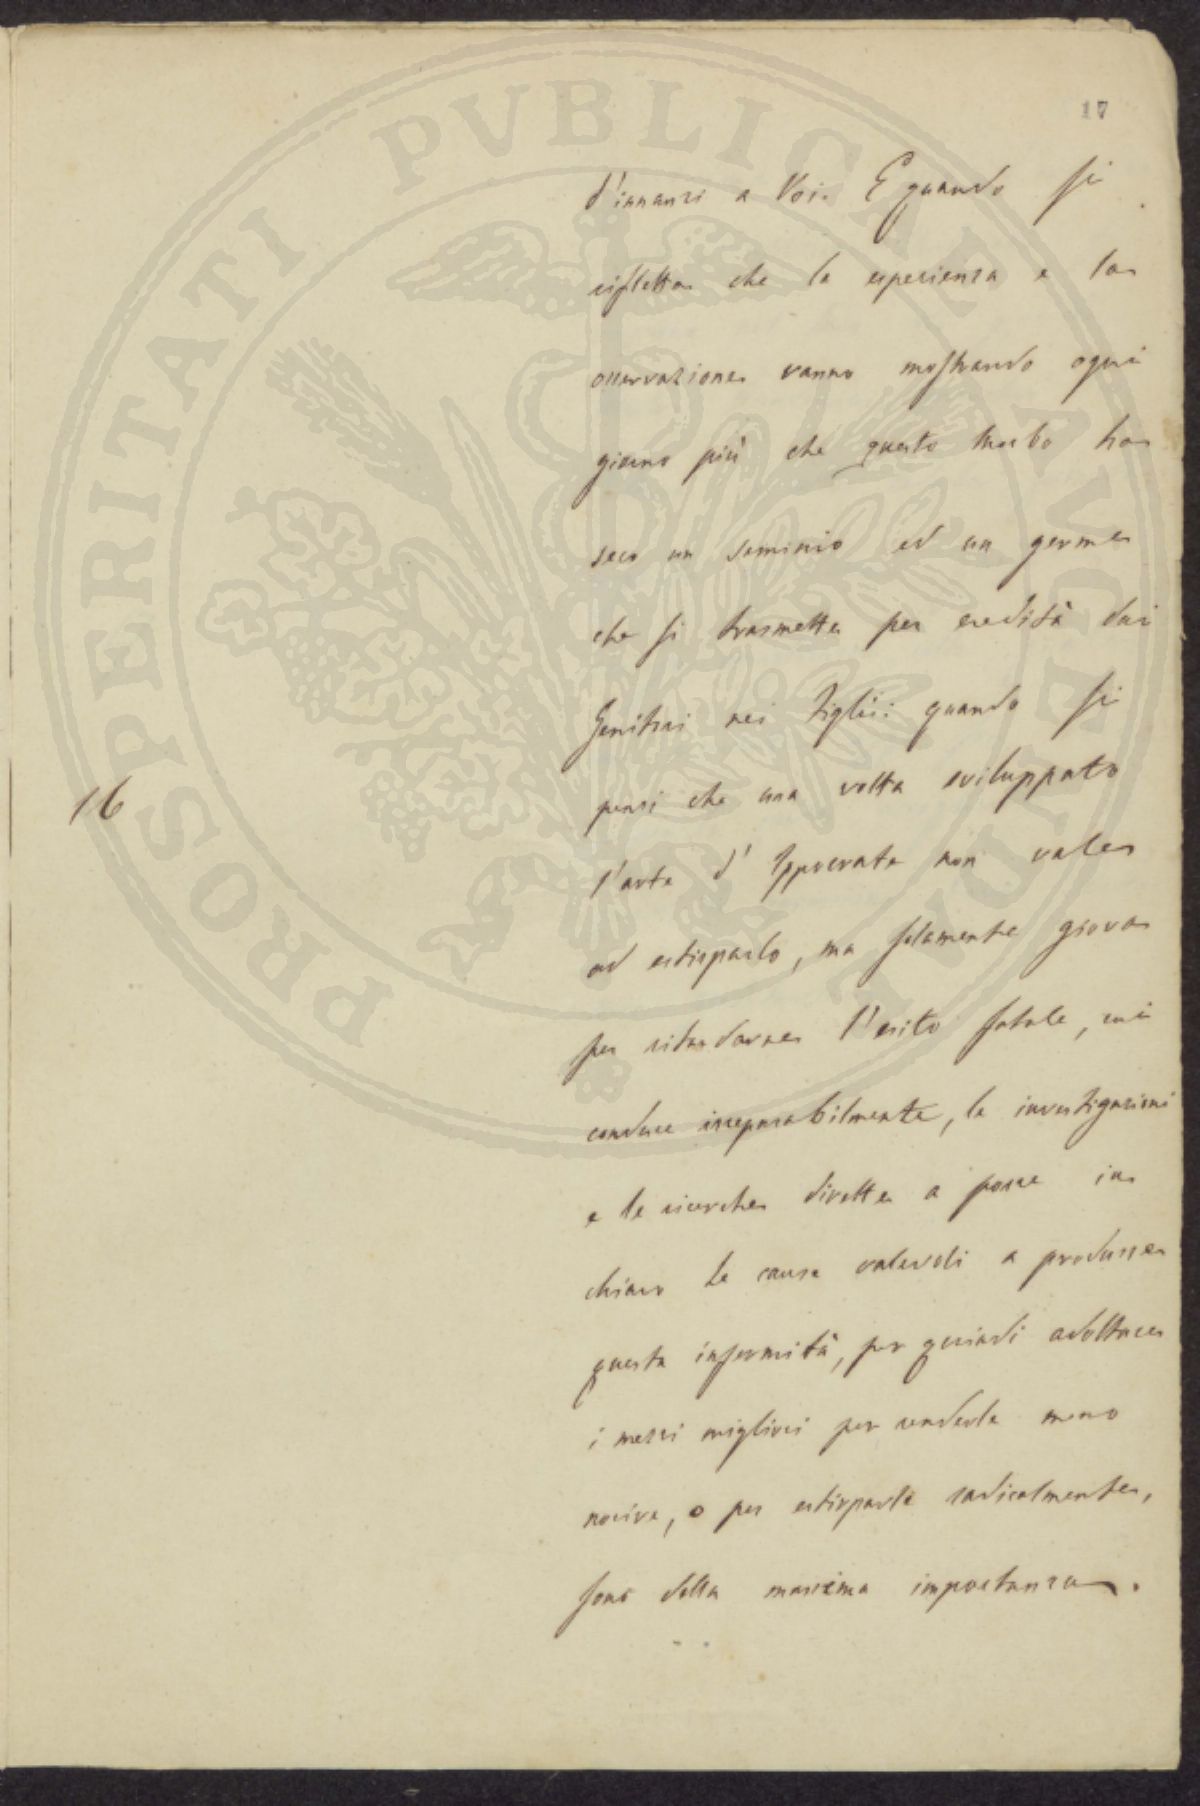 17
d'innanzi a Voi. E quando si
rifletta che la esperienza e la
osservazione vanno mostrando ogni
giorno più che questo morbo ha
seco un seminio ed un germe
che si trasmette per eredità dai
Genitori nei Figli: quando si
pensi che una volta sviluppato
16
l'arte d'Ippocrate non vale
ad estirparlo, ma solamente giova
per ritardarne l'esito fatale, cui
conduce irreparabilmente, le investigazioni
e le ricerche dirette a porre in
chiaro le cause valevoli a produrre
questa infermità, per quindi adottare
i mezzi migliori per renderle meno
nocive, o per estirparle radicalmente,
sono della massima importanza.
PROSPERITATI PVBLICAE AVGENDAE